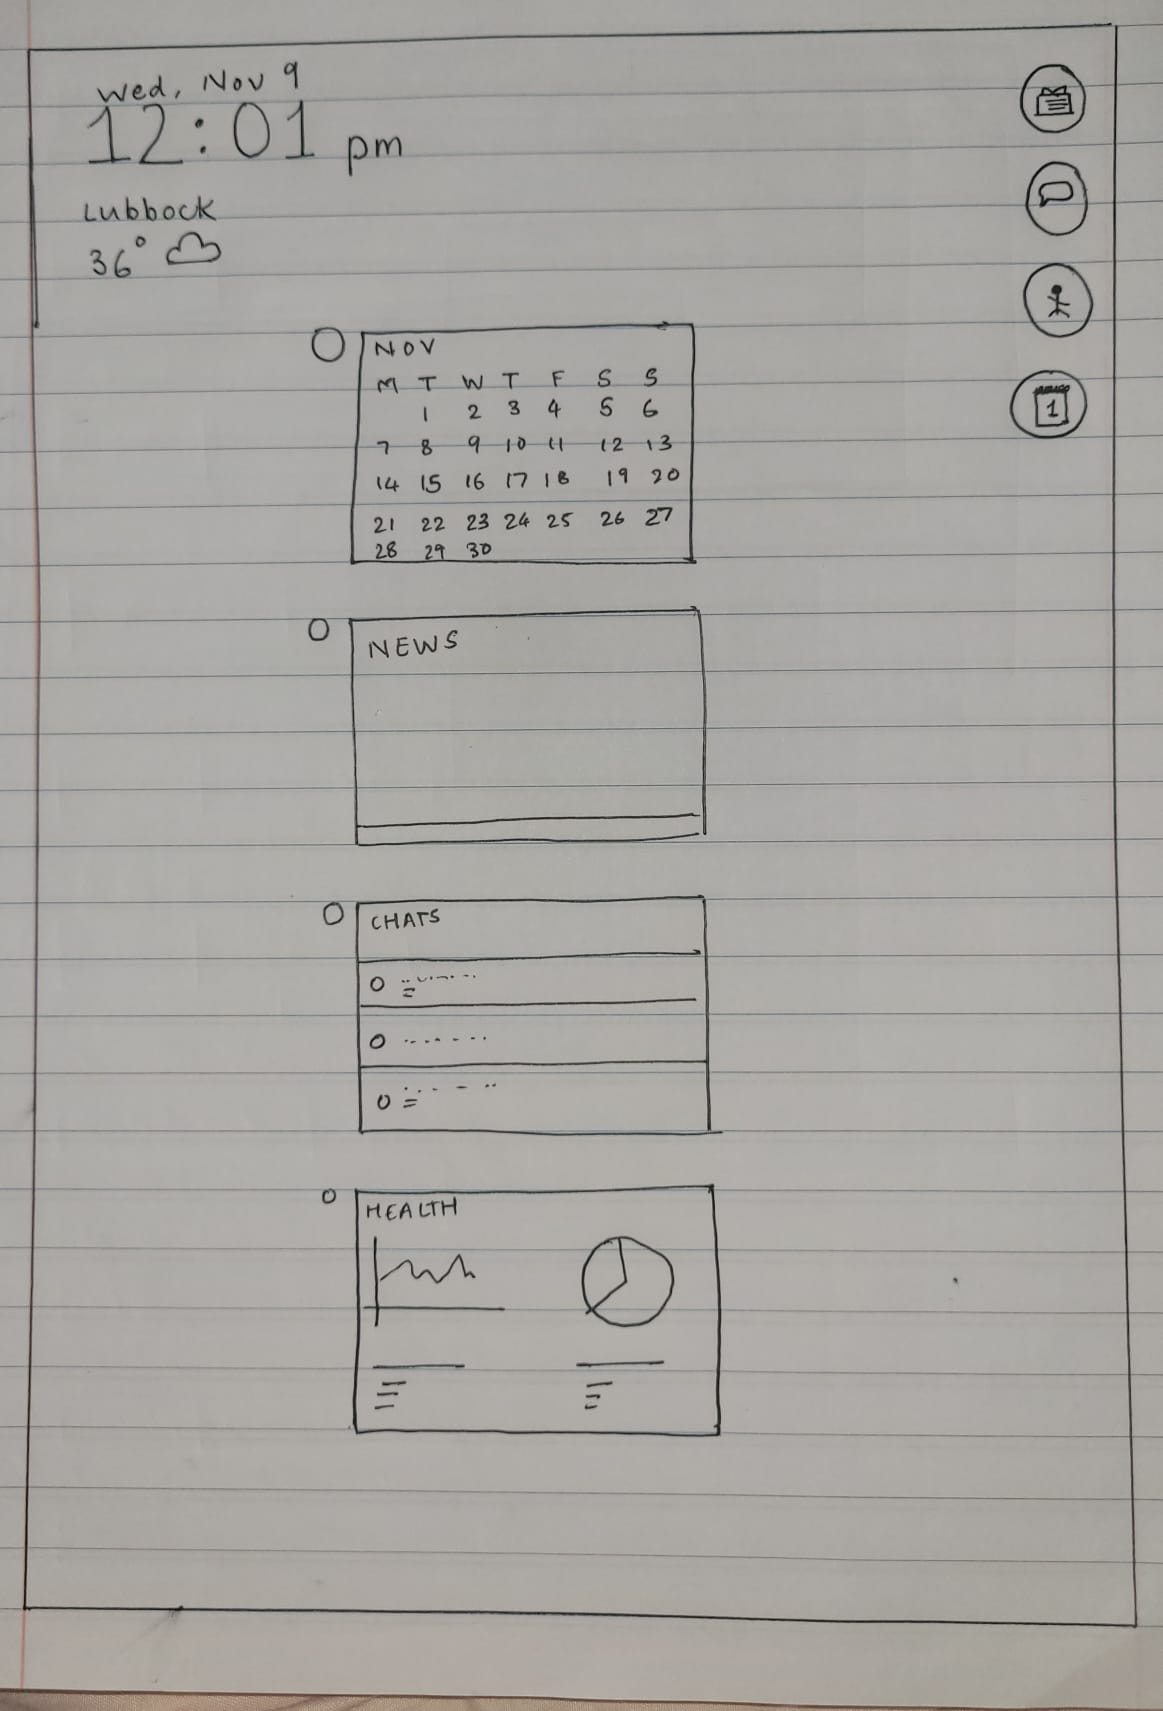 Wed, Nov 9
12:01 pm
Lubbock
36°
1
NOV
M T W T F S S
1 2 3 4 5 6
7 8 9 10 11 12 13
14 15 16 17 18 19 20
21 22 23 24 25 26 27
28 29 30
NEWS
CHATS
HEALTH